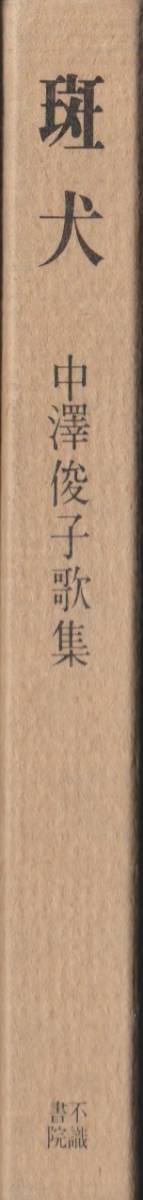 斑犬
中澤俊子歌集
不識
書院